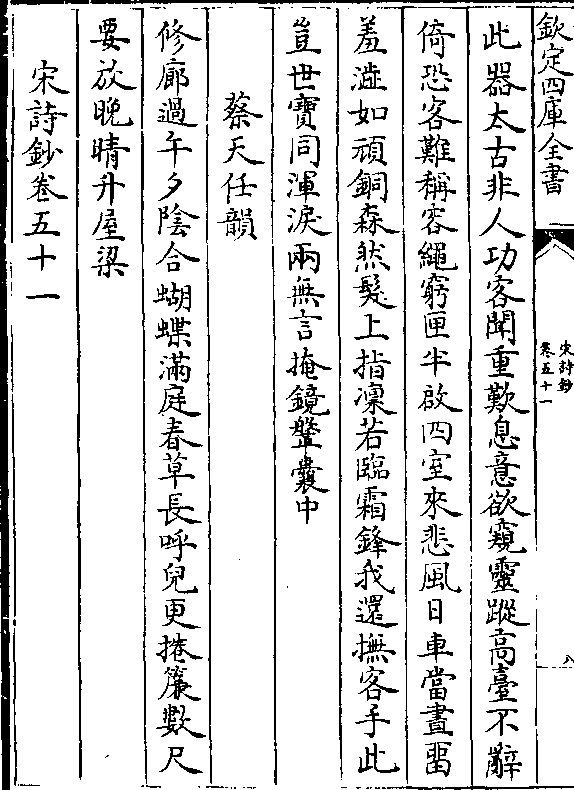 欽定四庫全書
宋詩鈔
卷五十一
八
此器太古非人功客聞重歎息意欲窺靈蹤高臺不辭
倚恐客難稱容繩窮匣半啟四室來悲風日車當晝留
羞澁如頑銅森然髮上指凜若臨霜鋒我還撫客手此
豈世寶同渾淚兩無言掩鏡鞶囊中
蔡天任韻
修廊過午夕陰合蝴蝶滿庭春草長呼兒更捲簾數尺
要放晚晴升屋梁
宋詩鈔卷五十一